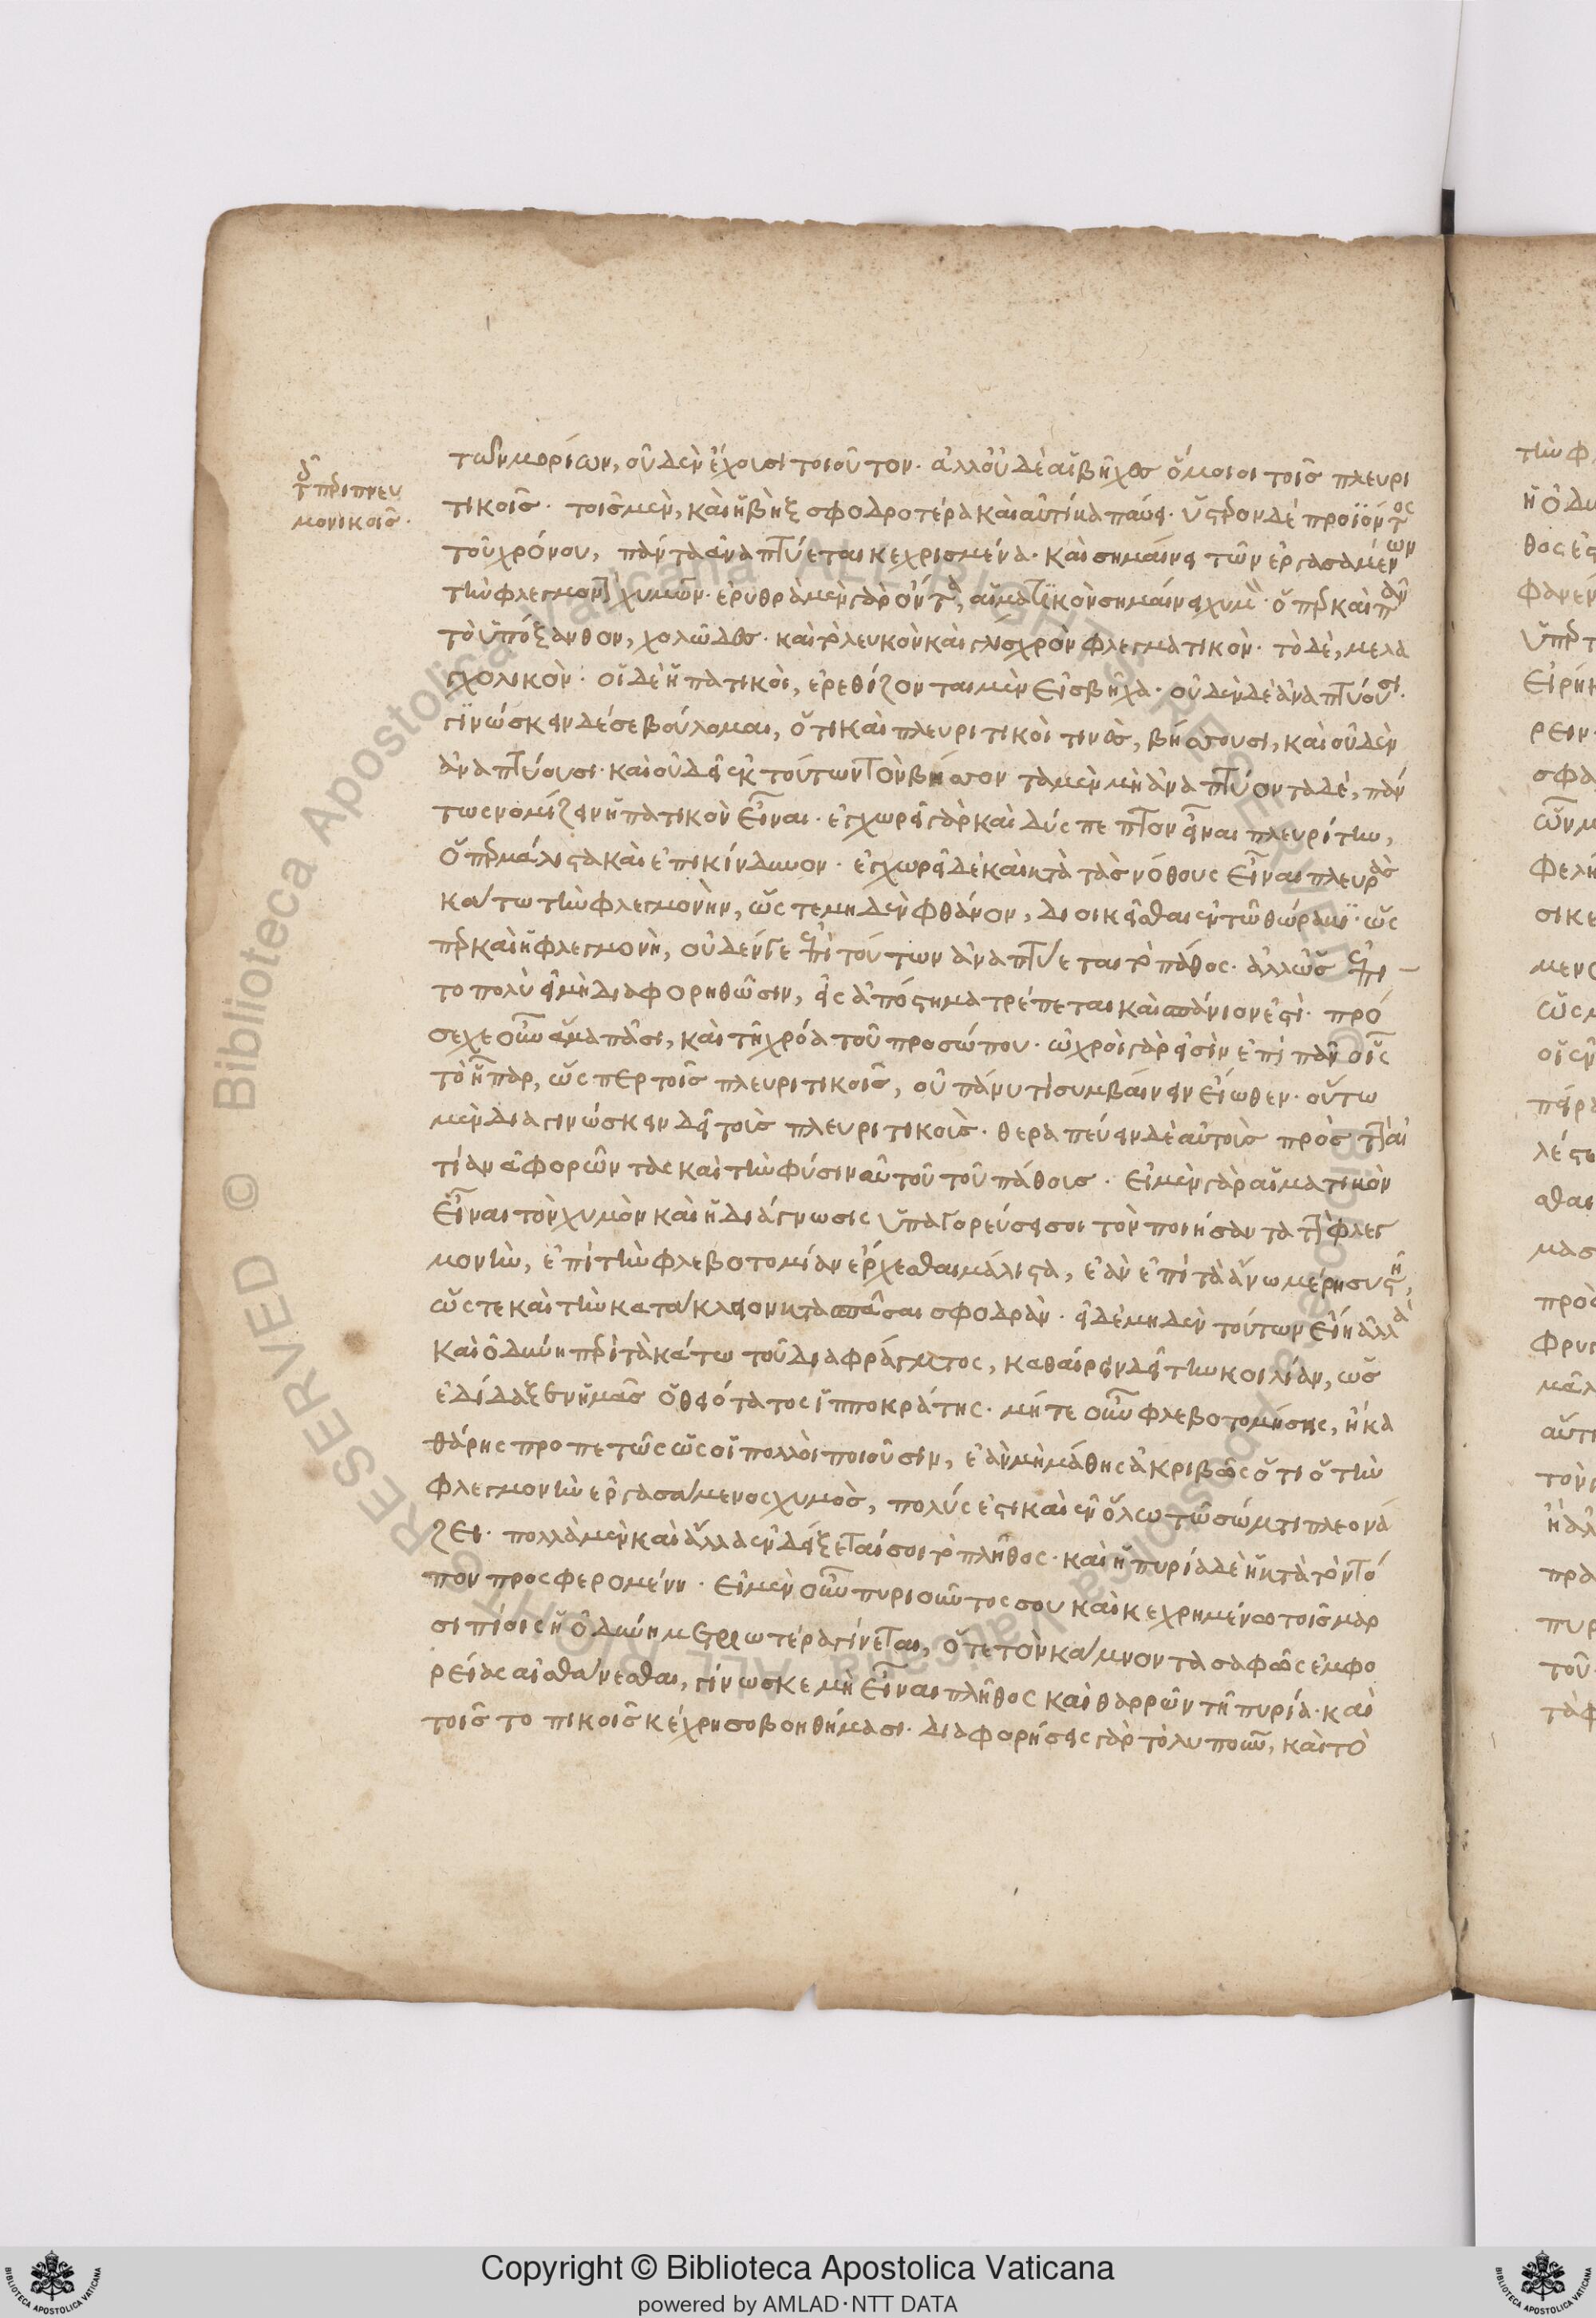 τοῖς περιπνευ
μονικοῖς·
των μορίων, οὐδὲν ἔχουσι τοιοῦτον· ἀλλ' οὐδὲ αἱ βῆχες ὅμοιοι τοῖς πλευρι
τικοῖς· τοῖς μὲν, καὶ ἡ βὴξ σφοδροτέρα καὶ αὐτίκα παύει· ὕστερον δὲ προϊόντος
τοῦ χρόνου, πάντα ἀναπτύεται κεχρισμένα· καὶ σημαίνει τῶν ἐργασαμένων
τὴν φλεγμονὴν χυμῶν· ἐρυθρὰ μὲν γὰρ ὄντα, αἱματικὸν σημαίνει χυμὸν· ὅπερ καὶ πᾶν
τὸ ὑπόξανθον, χολῶδες· καὶ τὸ λευκὸν καὶ γλίσχρον φλεγματικὸν· τὸ δὲ, μελα
γχολικὸν· οἱ δὲ ἡπατικοὶ, ἐρεθίζονται μὲν εἰς βῆχα· οὐδὲν δὲ ἀναπτύουσι·
γινώσκειν δέ σε βούλομαι, ὅτι καὶ πλευριτικοὶ τινὲς, βήσσουσι, καὶ οὐδὲν
ἀναπτύουσι· καὶ οὐ δεῖ ἐκ τούτων τὸν βήσσοντα μὲν μὴ ἀναπτύοντα δέ, πάν
τως νομίζειν ἡπατικὸν εἶναι· ἐγχωρεῖ γὰρ καὶ δύσπεπτον εἶναι πλευρίτιν,
ὅπερ μάλιστα καὶ ἐπικίνδυνον· ἐγχωρεῖ δὲ καὶ κατὰ τὰς νόθους εἶναι πλευρὰς
κάτω τὴν φλεγμονὴν, ὥστε μηδὲν φθάνον, διοικεῖσθαι ἐν τῷ θώρακι· ὥς
περ καὶ ἡ φλεγμονὴ, οὐδέν γε ἐπὶ τούτων ἀναπτύεται τὸ πάθος· ἀλλ' ὡς ἐπι
τοπολὺ εἰ μὴ διαφορηθῶσιν, εἰς ἀπόστημα τρέπεται καὶ σπάνιον ἐστὶ· πρό
σεχε οὖν ἅμα πᾶσι, καὶ τῇ χρόα τοῦ προσώπου· ὠχροὶ γὰρ εἰσὶν ἐπὶ πᾶν οἷς
τὸ ἧπαρ, ὥσπερ τοῖς πλευριτικοῖς, οὐ πάνυ τὶ συμβαίνειν εἴωθεν· οὕτω
μὲν διαγινώσκειν δεῖ τοὺς πλευριτικοὺς· θεραπεύειν δὲ αὐτοὺς πρὸς τὴν αἰ
τίαν ἀφορῶντας καὶ τὴν φύσιν αὐτοῦ τοῦ πάθους· εἰ μὲν γὰρ αἱματικὸν
εἶναι τὸν χυμὸν καὶ ἡ διάγνωσις ὑπαγορεύσει σοι τὸν ποιήσαντα τὴν φλεγ
μονὴν, ἐπὶ τὴν φλεβοτομίαν ἔρχεσθαι μάλιστα, ἐὰν ἐπὶ τὰ ἄνω μέρη συστῇ,
ὥστε καὶ τὴν κατακλεῖον κατασπᾶσαι σφοδρὰν· εἰ δὲ μηδὲν τούτων εἴη ἀλλὰ
καὶ ὀδύνη περὶ τὰ κάτω τοῦ διαφράγματος, καθαίρειν δεῖ τὴν κοιλίαν, ὡς
ἐδίδαξεν ἡμᾶς ὁ θειότατος ἱπποκράτης· μήτε οὖν φλεβοτομήσης, ἢ κα
θάρης προπετῶς ὡς οἱ πολλοὶ ποιοῦσιν, ἐὰν μὴ μάθης ἀκριβῶς ὅτι ὁ τὴν
φλεγμονὴν ἐργασάμενος χυμὸς, πολύς ἐστι καὶ ἐν ὅλω τῷ σώματι πλεονά
ζει· πολλὰ μὲν καὶ ἄλλα ἐνδείξεταί σοι τὸ πλῆθος· καὶ ἡ πυρία δὲ ἡ κατὰ τὸν τό
πον προσφερομένη· εἰ μὲν οὖν πυριοῦντος σου καὶ κεχρημένου τοῖς μαρ
σιπίοις ἡ ὀδύνη μετριωτέρα γίνεται, ὅτε τὸν κάμνοντα σαφῶς ἐμφο
ρείας αἰσθάνεσθαι, γίνωσκε μὴ εἶναι πλῆθος καὶ θαρρῶν τῇ πυρία· καὶ
τοῖς τοπικοῖς κέχρησο βοηθήμασι· διαφορήσεις γὰρ τὸ λυποῦν, καὶ τὸ
Copyright © Biblioteca Apostolica Vaticana
powered by AMLAD·NTT DATA